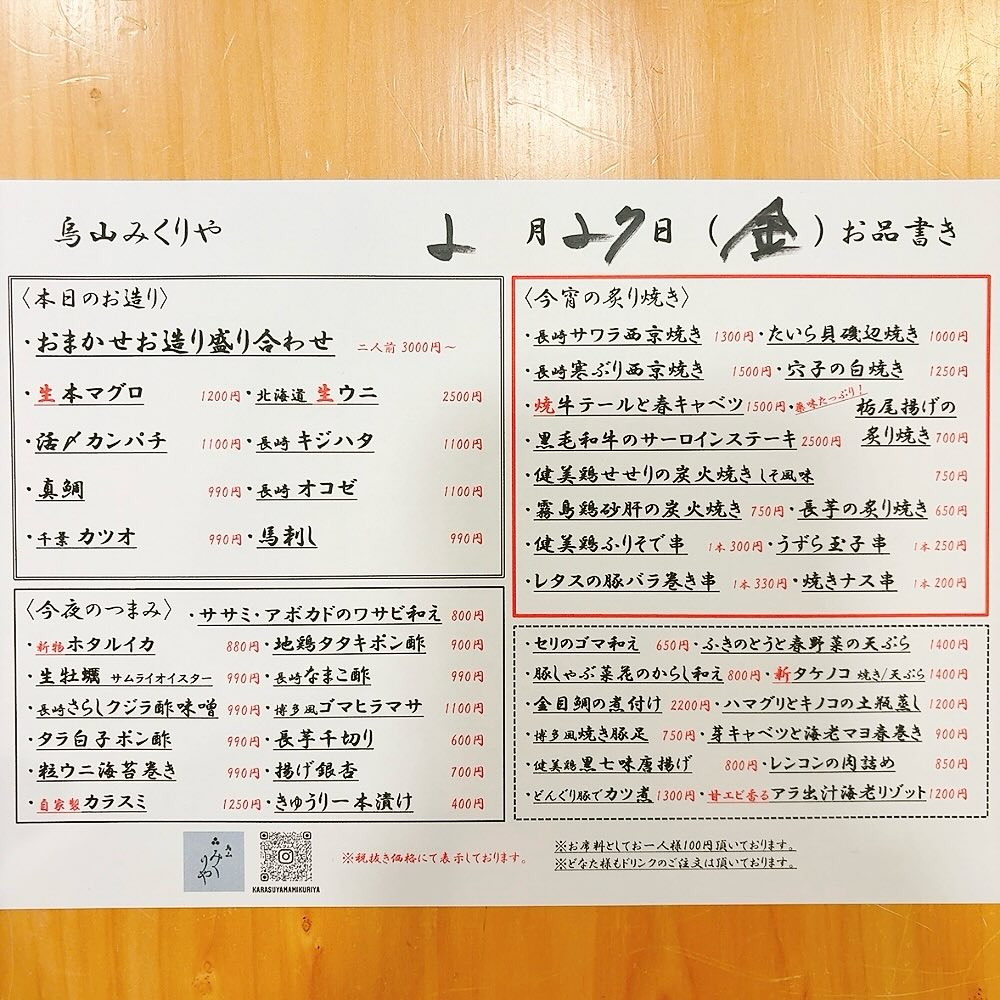 烏山みくりや 2月27日(金)お品書き
〈本日のお造り〉
・おまかせお造り盛り合わせ 二人前 3000円～
・生本マグロ 1200円・北海道 生ウニ 2500円
・活〆カンパチ 1100円・長崎 キジハタ 1100円
・真鯛 990円・長崎 オコゼ 1100円
・千葉 カツオ 990円・馬刺し 990円
〈今夜のつまみ〉 ・ササミ・アボカドのワサビ和え 800円
・新物ホタルイカ 880円・地鶏タタキポン酢 900円
・生牡蠣 サムライオイスター 990円・長崎なまこ酢 990円
・長崎さらしクジラ酢味噌 990円・博多風ゴマヒラマサ 1100円
・タラ白子ポン酢 990円・長芋千切り 600円
・粒ウニ海苔巻き 990円・揚げ銀杏 700円
・自家製カラスミ 1250円・きゅうり一本漬け 400円
〈今宵の炙り焼き〉
・長崎サワラ西京焼き 1300円・たいら貝磯辺焼き 1000円
・長崎寒ぶり西京焼き 1500円・穴子の白焼き 1250円
・焼牛テールと春キャベツ 1500円・薬味たっぷり！ 栃尾揚げの
・黒毛和牛のサーロインステーキ 2500円 炙り焼き 700円
・健美鶏せせりの炭火焼き しそ風味 750円
・霧島鶏砂肝の炭火焼き 750円・長芋の炙り焼き 650円
・健美鶏ふりそで串 1本 300円・うずら玉子串 1本 250円
・レタスの豚バラ巻き串 1本 330円・焼きナス串 1本 200円
・セリのゴマ和え 650円・ふきのとうと春野菜の天ぷら 1400円
・豚しゃぶ菜花のからし和え 800円・新タケノコ 焼き/天ぷら 1400円
・金目鯛の煮付け 2200円・ハマグリとキノコの土瓶蒸し 1200円
・博多風焼き豚足 750円・芽キャベツと海老マヨ春巻き 900円
・健美鶏黒七味唐揚げ 800円・レンコンの肉詰め 850円
・どんぐり豚でカツ煮 1300円・甘エビ香るアラ出汁海老リゾット 1200円
みくりや
KARASUYAMAMIKURIYA
※税抜き価格にて表示しております。
※お席料としてお一人様100円頂いております。
※どなた様もドリンクのご注文は頂いております。